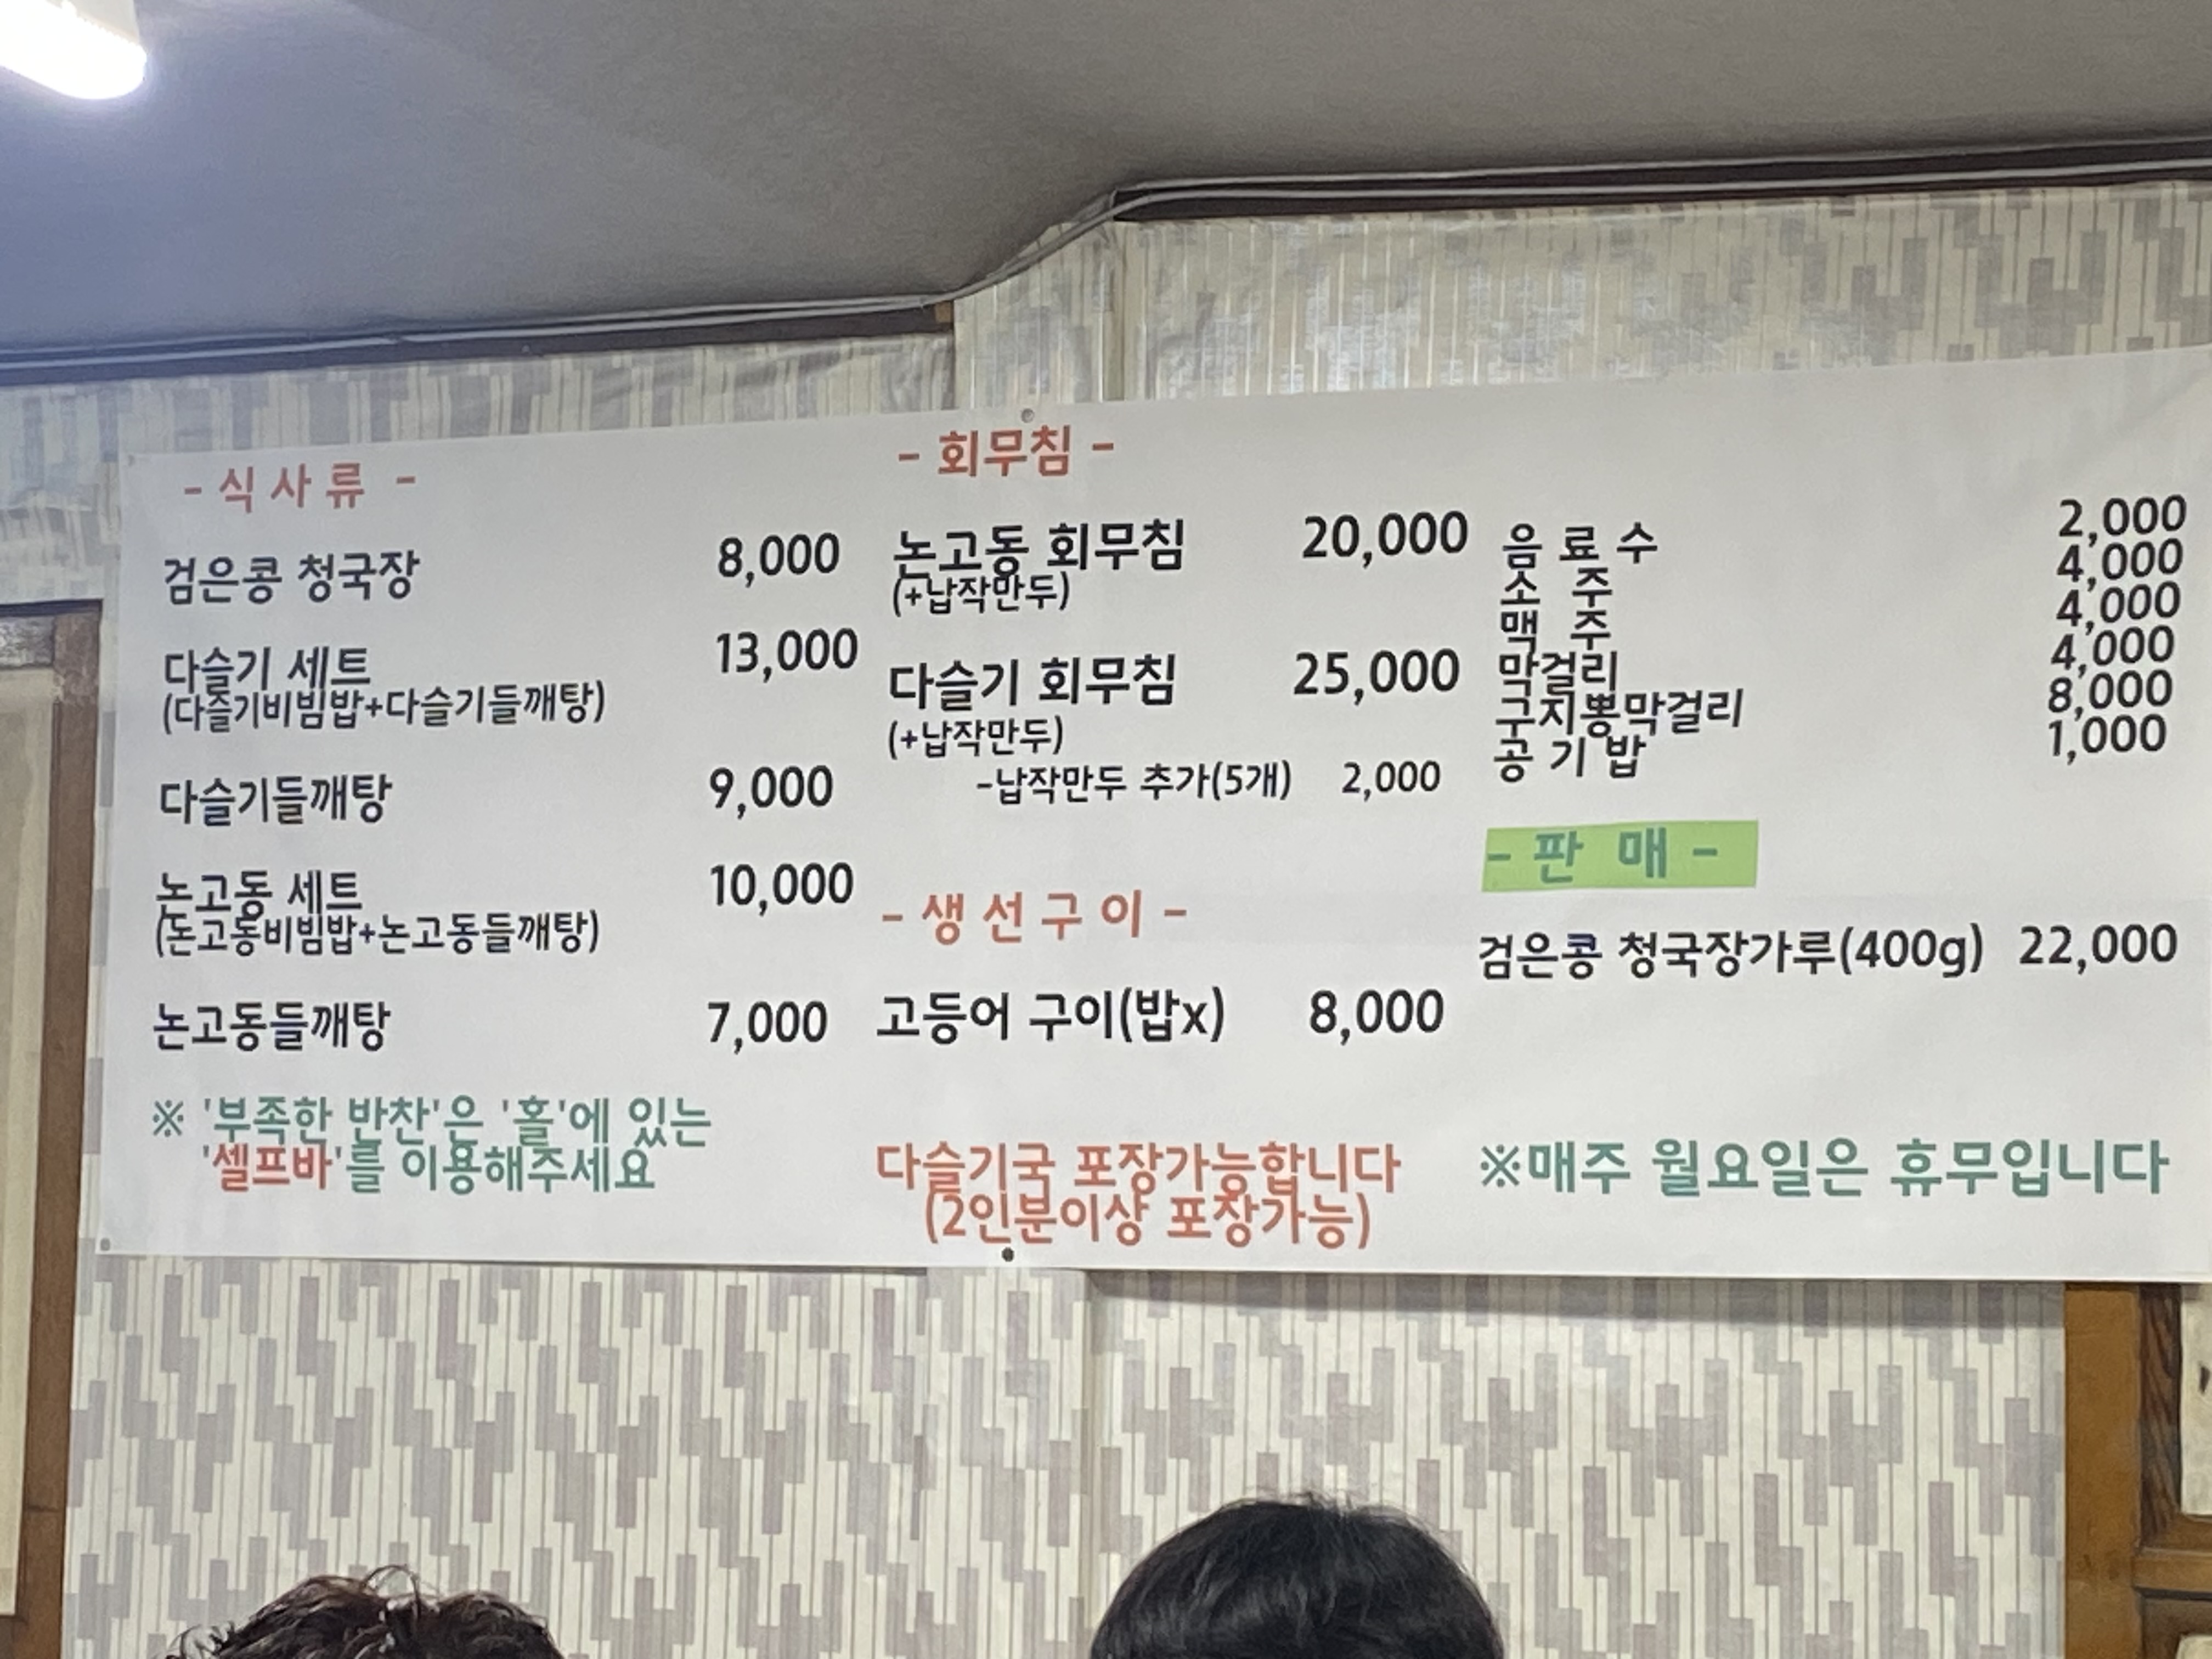 - 식 사 류 -
검은콩 청국장 8,000
다슬기 세트 13,000
(다슬기비빔밥+다슬기들깨탕)
다슬기들깨탕 9,000
논고동 세트 10,000
(논고동비빔밥+논고동들깨탕)
논고동들깨탕 7,000
※ '부족한 반찬'은 '홀'에 있는
'셀프바'를 이용해주세요
- 회무침 -
논고동 회무침 20,000
(+납작만두)
다슬기 회무침 25,000
(+납작만두)
-납작만두 추가(5개) 2,000
- 생 선 구 이 -
고등어 구이(밥x) 8,000
다슬기국 포장가능합니다
(2인분이상 포장가능)
음 료 수 2,000
소 주 4,000
맥 주 4,000
막걸리 4,000
구지뽕막걸리 8,000
공 기 밥 1,000
- 판 매 -
검은콩 청국장가루(400g) 22,000
※매주 월요일은 휴무입니다